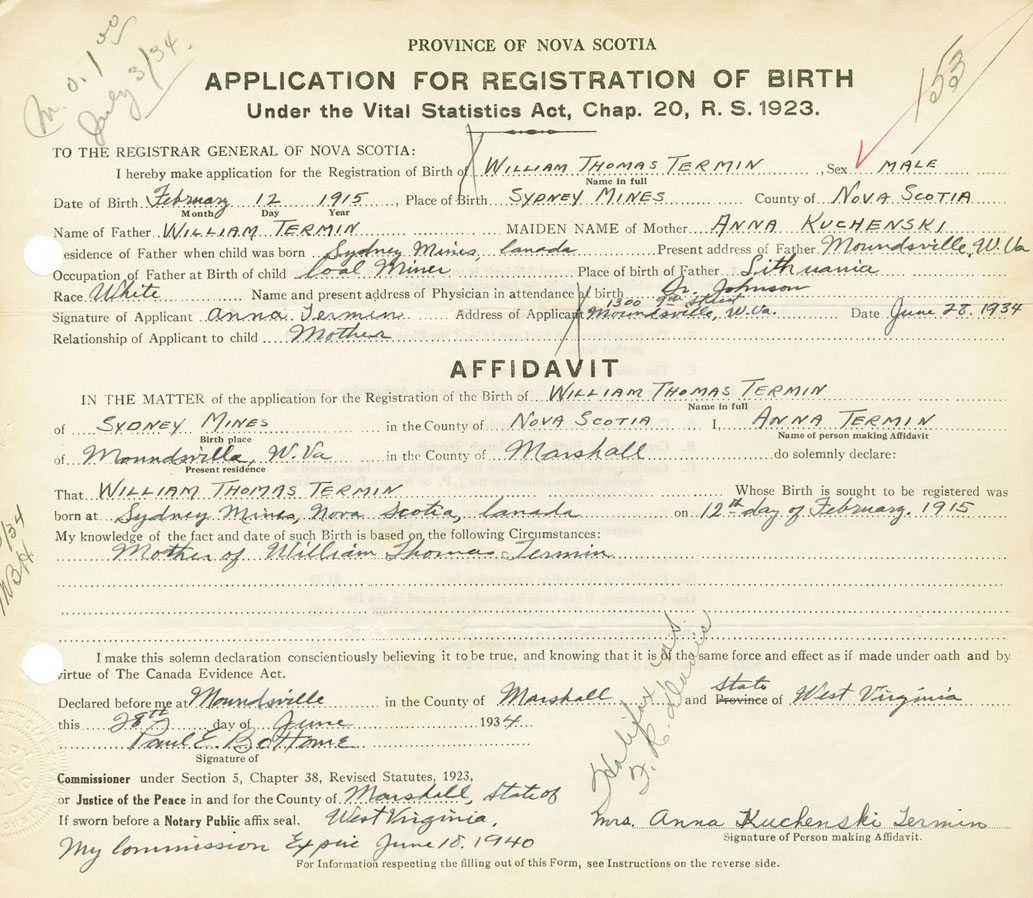 M.O. 1 00
July 3/34.
153
PROVINCE OF NOVA SCOTIA
APPLICATION FOR REGISTRATION OF BIRTH
Under the Vital Statistics Act, Chap. 20, R. S. 1923.
TO THE REGISTRAR GENERAL OF NOVA SCOTIA:
I hereby make application for the Registration of Birth of WILLIAM THOMAS TERMIN, Sex MALE
Name in full
Date of Birth February 12 1915, Place of Birth SYDNEY MINES County of NOVA SCOTIA
Month Day Year
Name of Father WILLIAM TERMIN MAIDEN NAME of Mother ANNA KUCHENSKI
esidence of Father when child was born Sydney Mines, Canada Present address of Father Moundsville, W.Va
Occupation of Father at Birth of child Coal Miner Place of birth of Father Lithuania
Race White Name and present address of Physician in attendance at birth Dr. Johnson
1300 9th Street
Signature of Applicant Anna Termin Address of Applicant Moundsville, W.Va. Date June 28. 1934
Relationship of Applicant to child Mother
AFFIDAVIT
IN THE MATTER of the application for the Registration of the Birth of WILLIAM THOMAS TERMIN
Name in full
of SYDNEY MINES in the County of NOVA SCOTIA I, ANNA TERMIN
Birth place Name of person making Affidavit
of Moundsville, W.Va in the County of Marshall do solemnly declare:
Present residence
That WILLIAM THOMAS TERMIN Whose Birth is sought to be registered was
born at Sydney Mines, Nova Scotia, Canada on 12th day of February. 1915
My knowledge of the fact and date of such Birth is based on the following Circumstances:
Mother of William Thomas Termin
I make this solemn declaration conscientiously believing it to be true, and knowing that it is of the same force and effect as if made under oath and by
virtue of The Canada Evidence Act.
State
Declared before me at Moundsville in the County of Marshall and Province of West Virginia
this 28th day of June 1934
Paul E. Bottome
Signature of
Commissioner under Section 5, Chapter 38, Revised Statutes, 1923,
or Justice of the Peace in and for the County of Marshall, State of
If sworn before a Notary Public affix seal. West Virginia.
My Commission Expire June 18. 1940
Mrs. Anna Kuchenski Termin
Signature of Person making Affidavit.
For Information respecting the filling out of this Form, see Instructions on the reverse side.